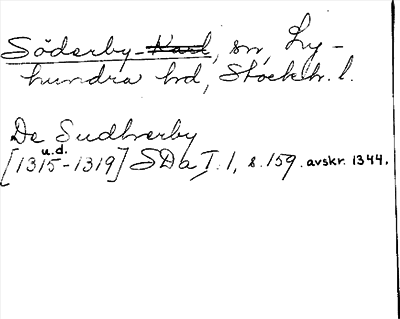 Söderby-Karl, sn, Ly-
hundra hd, Stockh. l.
De Sudhrerby
u.d.
[1315-1319] SDa I. 1, s. 159. avskr. 1344.